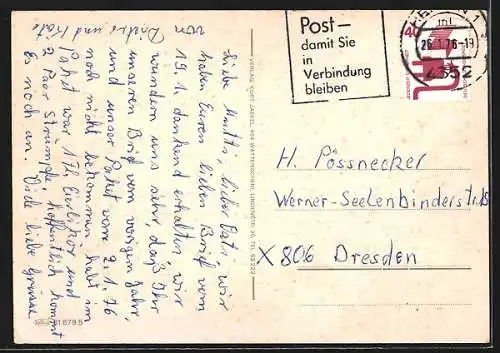 Liebe Mutti, lieber Vati, wir
haben Euren lieben Brief vom
19.1. dankend erhalten, wir
wundern uns sehr, daß Ihr
unseren Brief vom vorigen Jahr,
und unser Paket vom 2.1.76
noch nicht bekommen habt im
Paket war 1 Fl. Eierlikör und
2 Paar Strümpfe, hoffentlich kommt
Es noch an. Viele liebe Grüsse
von
und Käte
Post–
damit Sie
in
Verbindung
bleiben
26.1.76-19
4352
40
H. Pössnecker
Werner-Seelenbinderstr.
X 806 Dresden
61.679.5